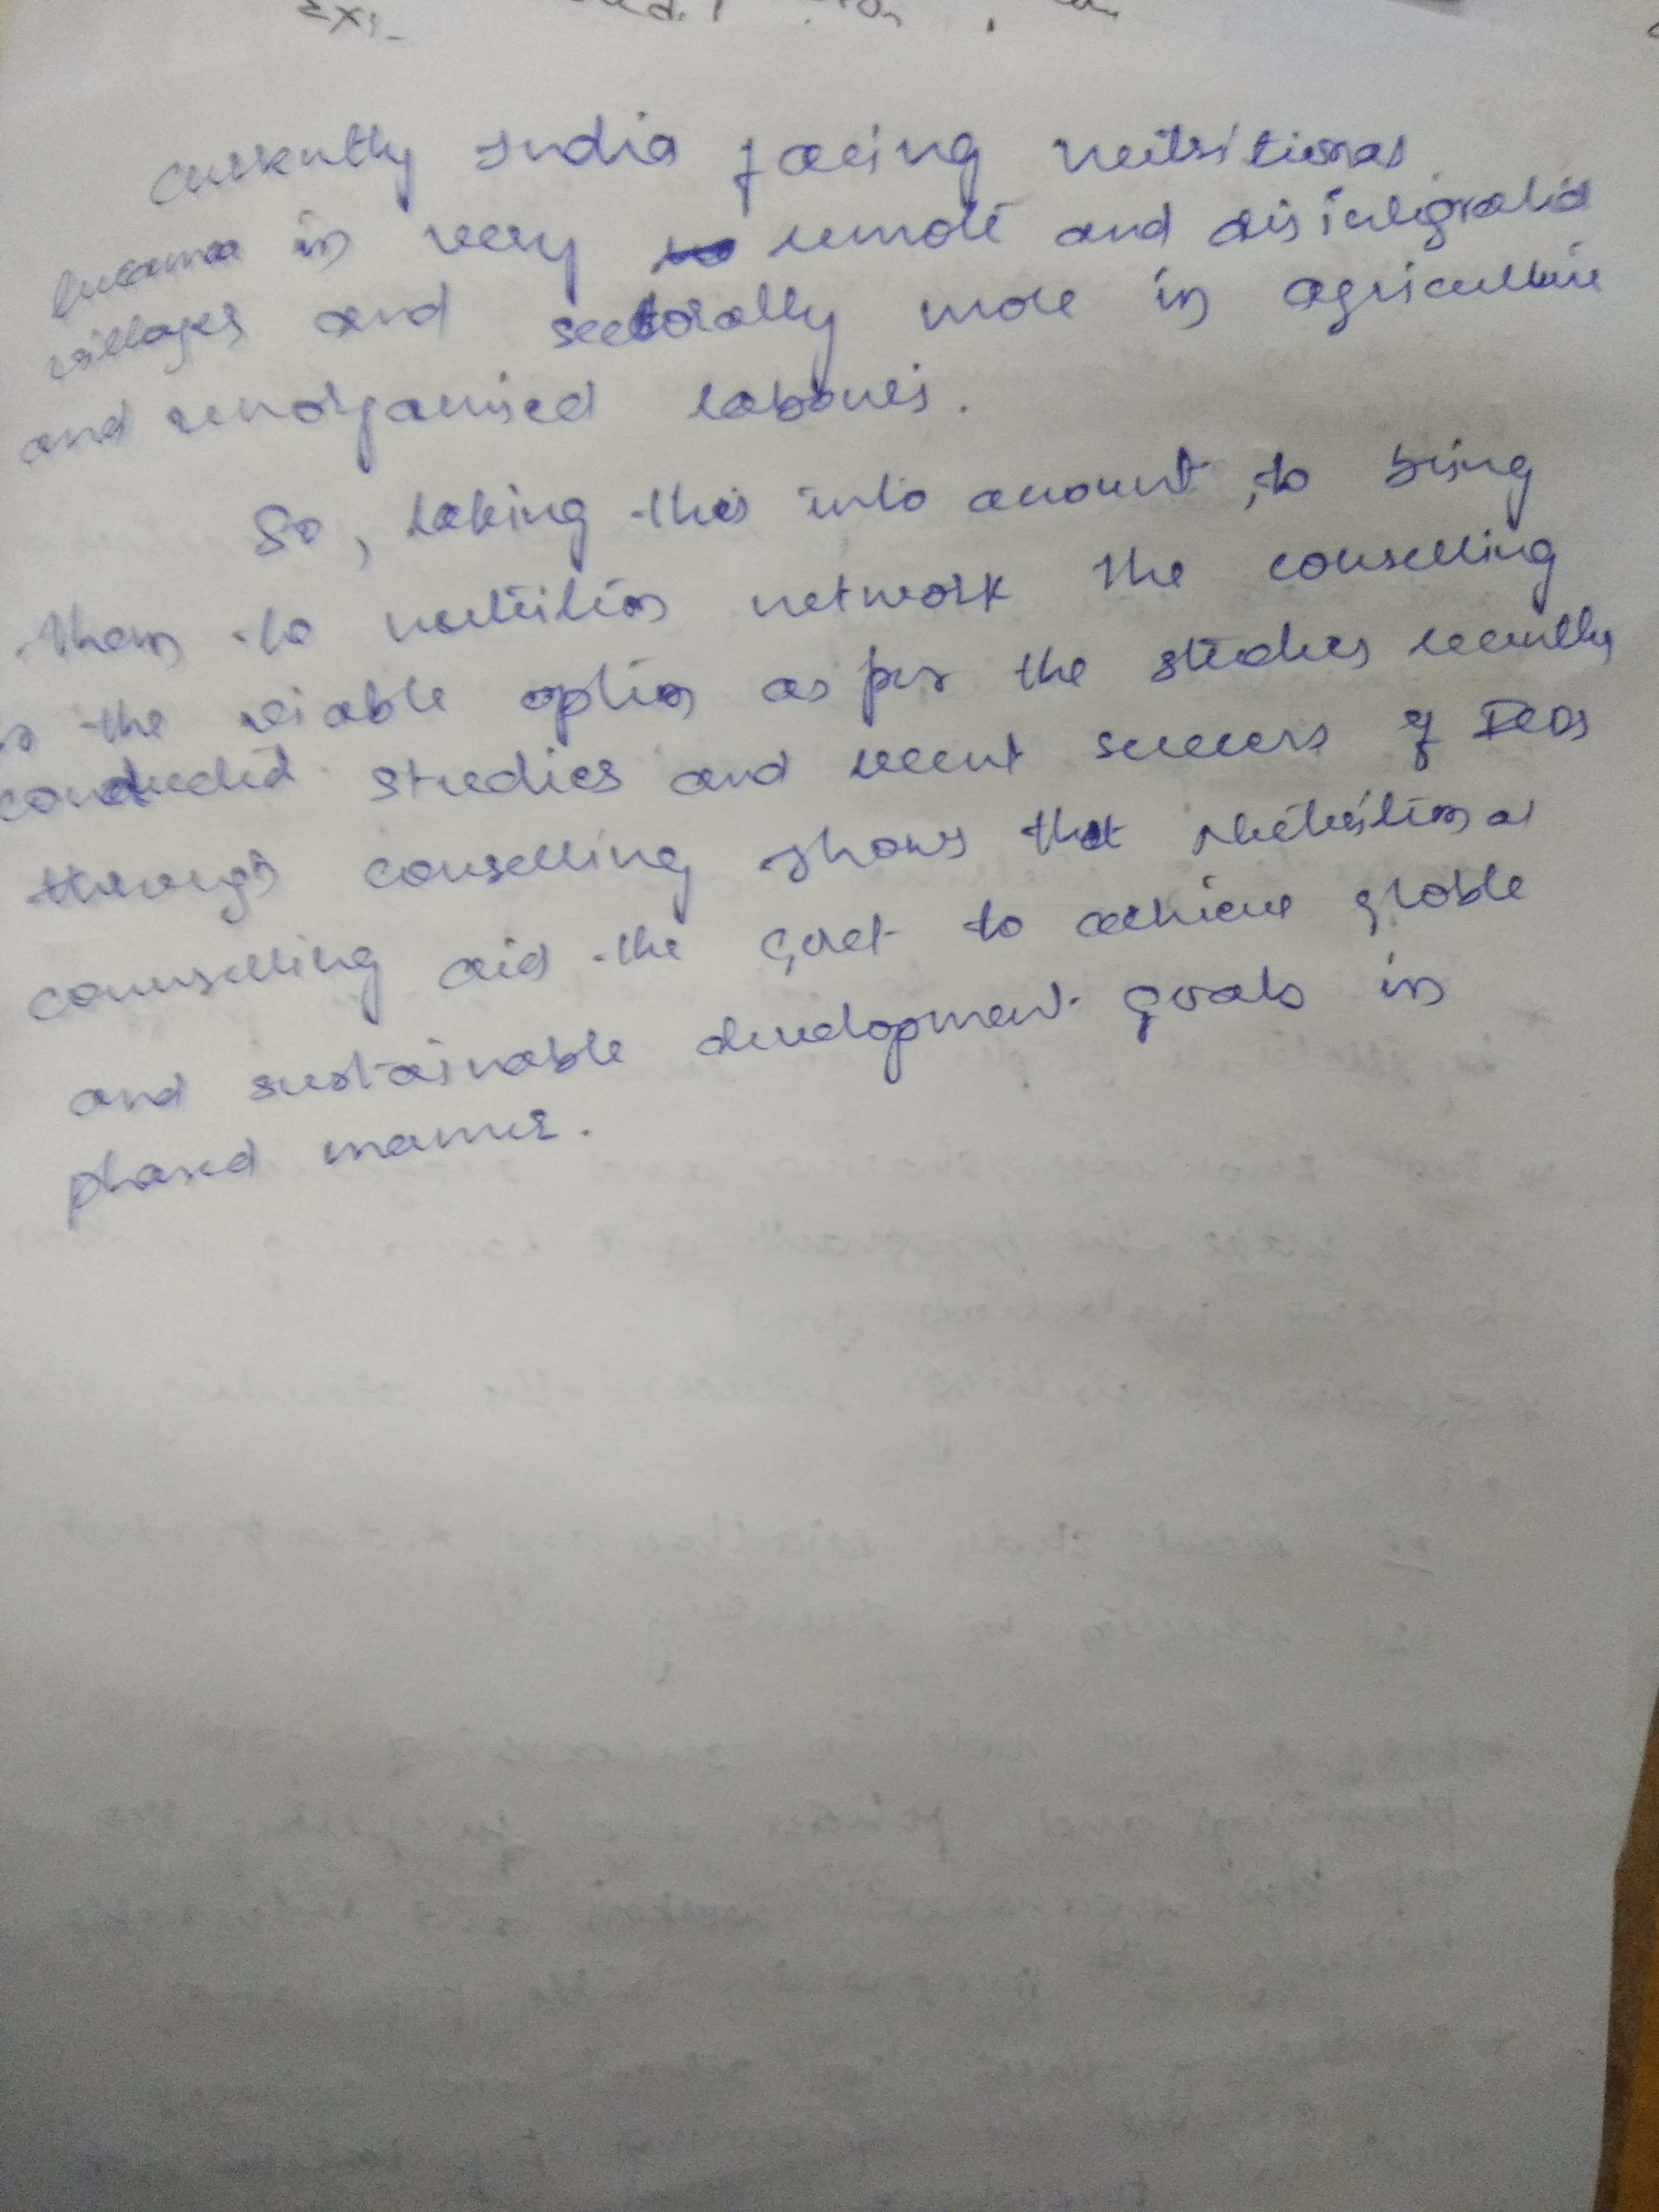 currently India facing nutritional
in very remote and disintegrated
villages and sectorally more in agriculture
and unorganised labours.
So, taking this into account, to bring
them to nutrition network the counselling
is the viable option as per the studies recently
conducted studies and recent success of ICDS
through conselling shows that nutritional
counselling aid the Govt to achieve globle
and sustainable development goals in
phased manner.